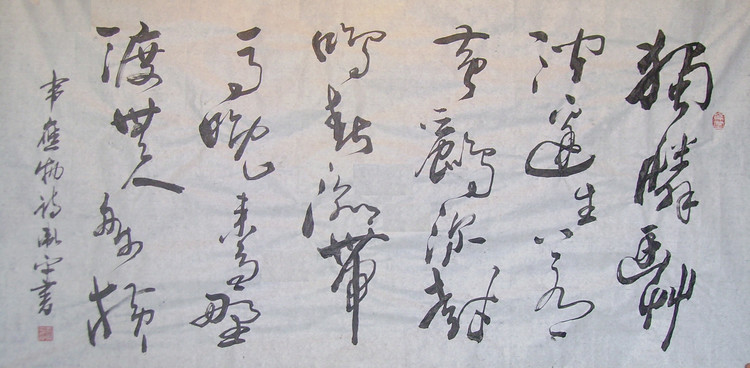 獨憐幽艸
澗邊生上有
黃鸝深樹
鳴春潮帶
雨晚來急野
渡無人舟自橫
韋應物詩 書